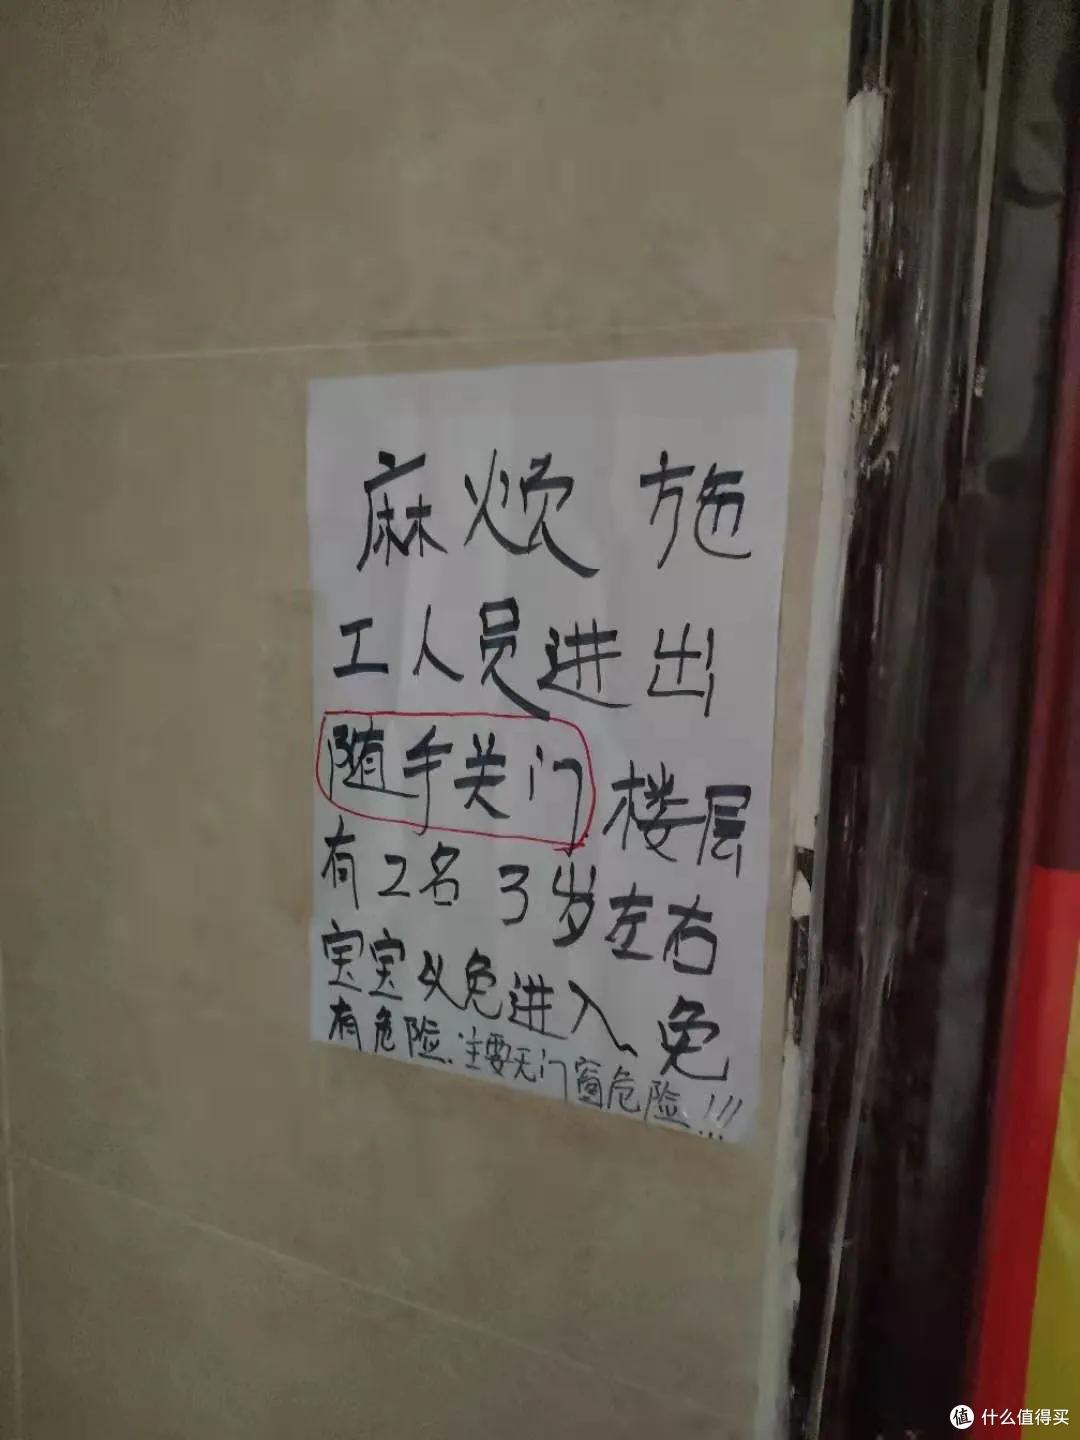 麻烦施
工人员进出
随手关门 楼层
有2名 3岁左右
宝宝以免进入 免
有危险.主要无门窗危险!!!
值 什么值得买